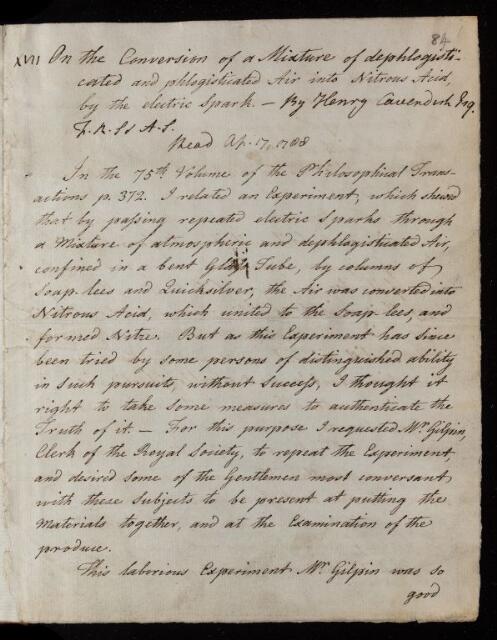 84
XVII On the Conversion of a Mixture of dephlogisti-
cated and phlogisticated Air into Nitrous Acid,
by the electric Spark. — By Henry Cavendish Esq.
F.R.S & A.S.
Read Ap. 17, 1788
In the 75th Volume of the Philosophical Trans-
actions p. 372. I related an Experiment, which shewed
that by passing repeated electric Sparks through
a Mixture of atmospheric and dephlogisticated Air,
confined in a bent Glass Tube, by columns of
Soap-lees and Quicksilver, the Air was converted into
Nitrous Acid, which united to the Soap lees, and
formed Nitre. But as this Experiment has since
been tried by some persons of distinguished ability
in such pursuits, without Success, I thought it
right to take some measures to authenticate the
Truth of it. — For this purpose I requested Mr. Gilpin,
Clerk of the Royal Society, to repeat the Experiment,
and desired some of the Gentlemen most conversant
with these Subjects to be present at putting the
Materials together, and at the Examination of the
produce.
This laborious Experiment Mr. Gilpin was so
good